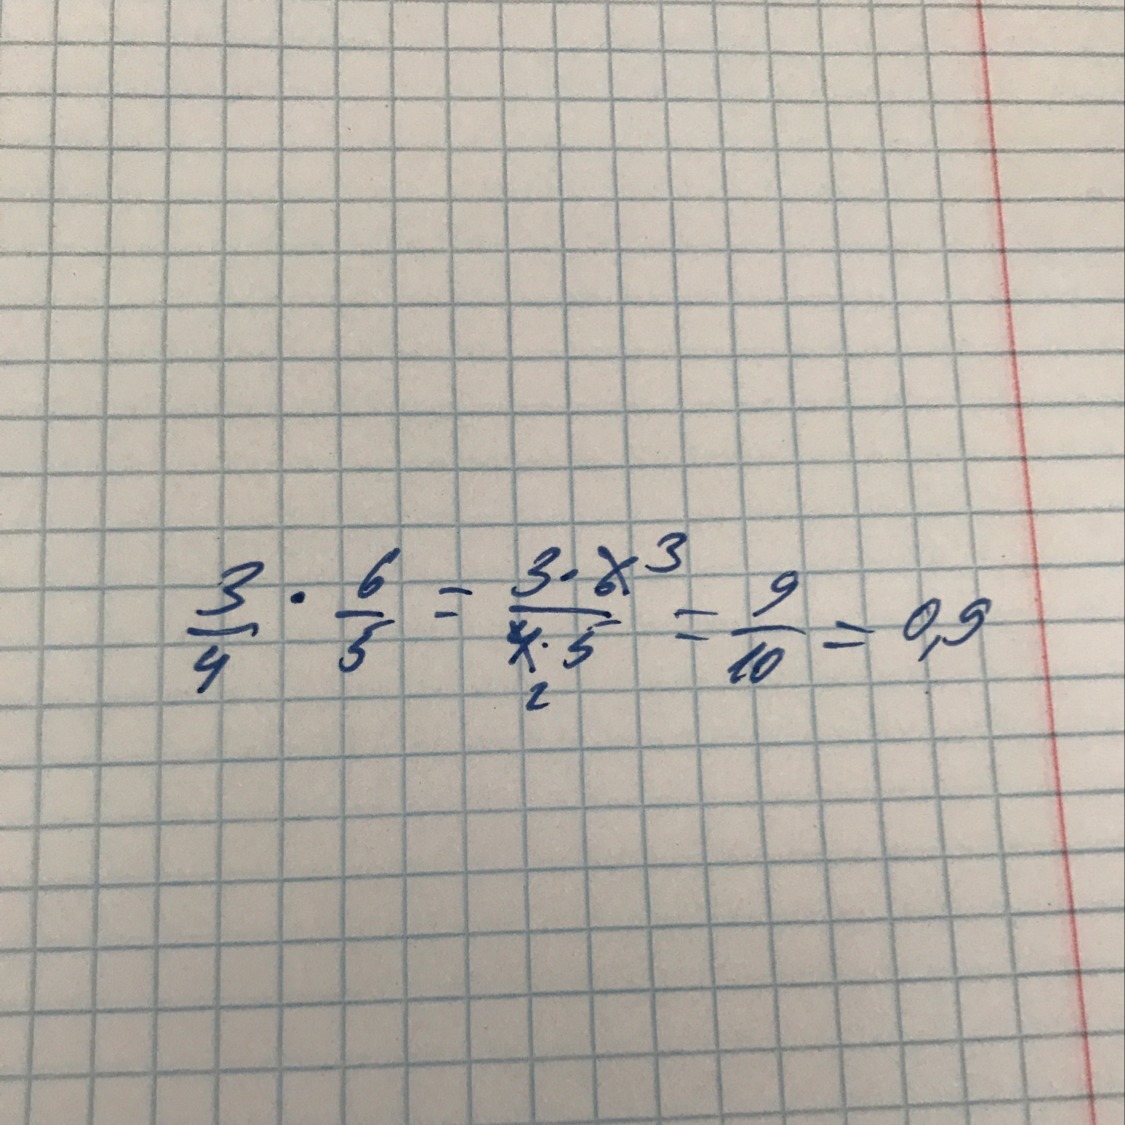 3/4 · 6/5 = 3·6 3/4·5 2 = 9/10 = 0,9